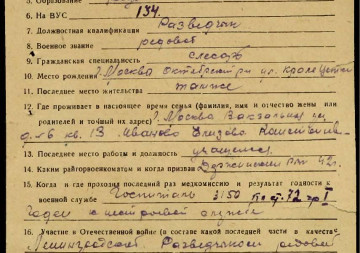 5. Образование
6. На ВУС 134
7. Должностная квалификация Разведчик
8. Военное звание рядовой
9. Гражданская специальность слесарь
10. Место рождения г. Москва Октябрьский р-н ул.
11. Последнее место жительства
12. Где проживает в настоящее время семья (фамилия, имя и отчество жены или
родителей и точный их адрес) г. Москва
д. 6 кв. 13 Иванова
13. Последнее место работы и должность
14. Каким райгорвоенкоматом и когда призван Дзержинским РВК 42г.
15. Когда и где проходил последний раз медкомиссию и результат годности к
военной службе Госпиталь 3150 по ст. 72 гр I
Годен к нестроевой службе
16. Участие в Отечественной войне (в составе какой последней части в качестве
Разведчиком рядовой